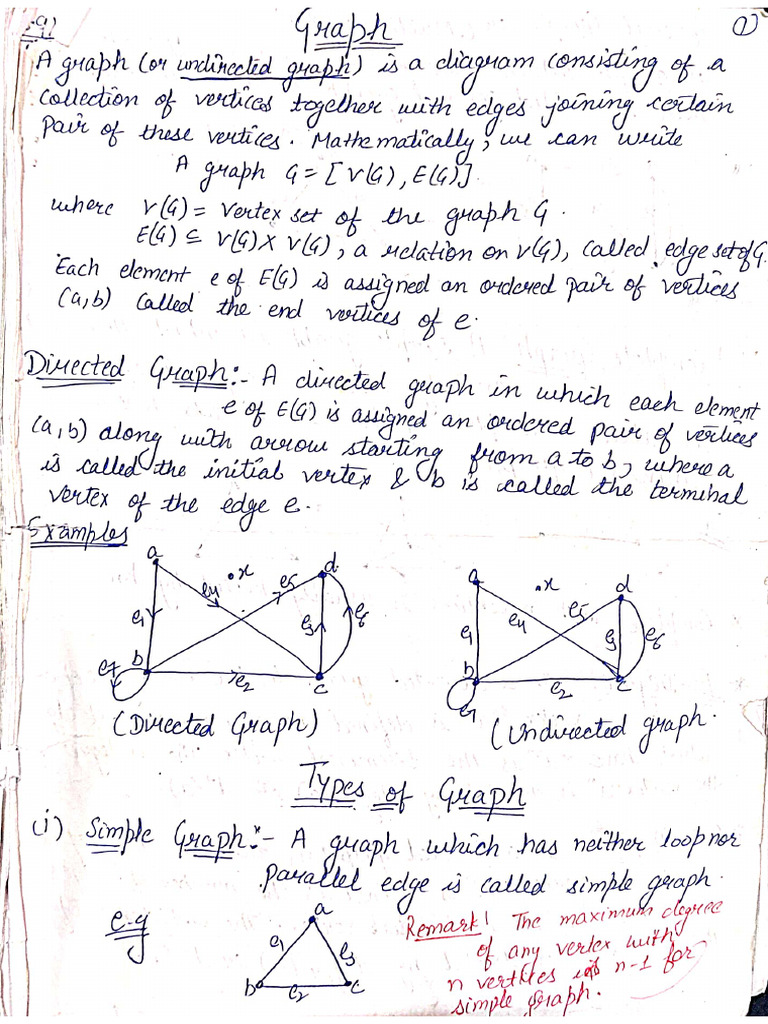 Graph
①
A graph (or undirected graph) is a diagram consisting of a
collection of vertices together with edges joining certain
pair of these vertices. Mathematically, we can write
A graph G = [V(G), E(G)].
where V(G) = Vertex set of the graph G.
E(G) ⊆ V(G) X V(G), a relation on V(G), called edge set of G.
Each element e of E(G) is assigned an ordered pair of vertices
(a,b) called the end vertices of e.
Directed Graph:- A directed graph in which each element
e of E(G) is assigned an ordered pair of vertices
(a,b) along with arrow starting from a to b, where a
is called the initial vertex & b is called the terminal
vertex of the edge e.
Examples
a x d
e4 e5
e1 e3 e6
e7 b e2 c
(Directed Graph)
a x d
e4 e5
e1 e3 e6
b e2 c
e7
(Undirected graph.
Types of Graph
(i) Simple Graph:- A graph which has neither loop nor
parallel edge is called simple graph.
e.g
a
e1 e3
b e2 c
Remark! The maximum degree
of any vertex with
n vertices is n-1 for
simple graph.